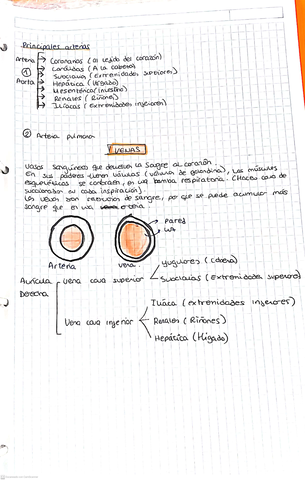 Principales arterias
Arteria Coronarias (al tejido del corazón)
① Carótidas (A la cabeza)
Aorta Subclavia (Extremidades superiores)
Hepática (Hígado)
Mesentérica (Intestino)
Renales (Riñones)
Ilíacas (Extremidades inferiores)
② Arteria pulmonar
VENAS
Vasos sanguíneos que devuelven la sangre al corazón.
En sus paredes tienen válvulas (válvulas de), los músculos
esqueléticos se contraen, en una bomba respiratoria. (Hacen cava de
succionador en cada inspiración).
Las venas son reservorio de sangre, por que se puede acumular más
sangre que en una
Pared
Arteria vena
Aurícula vena cava superior yugulares (cabeza)
Derecha Subclavias (Extremidades superiores)
Vena cava inferior Iliaca (extremidades inferiores)
Renales (Riñones)
Hepática (Hígado)